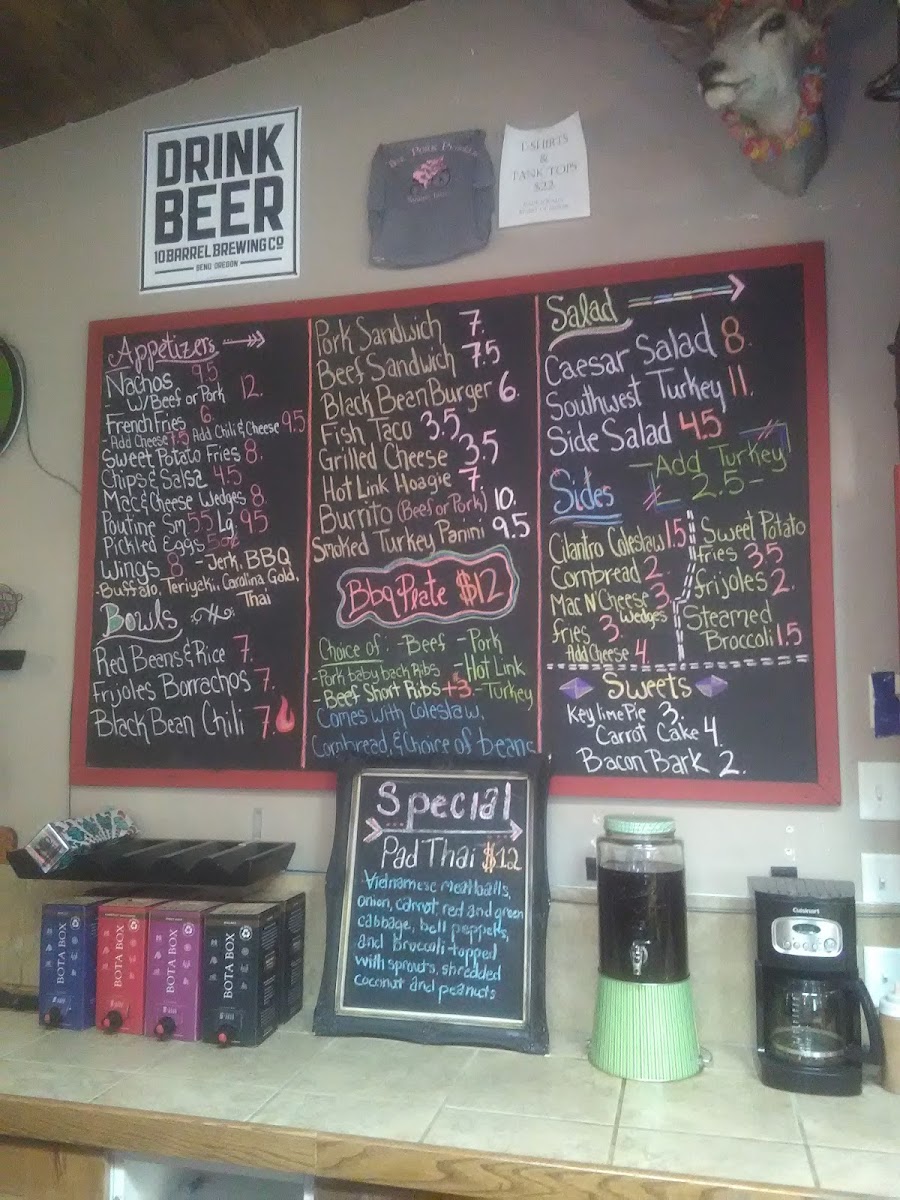 DRINK
BEER
10 BARREL BREWING CO
BEND OREGON
T-SHIRTS
&
TANK TOPS
$22
Appetizers
Nachos 9.5
- W/Beef or Pork 12.
French Fries 6.
- Add Cheese 7.5 Add Chili & Cheese 9.5
Sweet Potato Fries 8.
Chips & Salsa 4.5
Mac & Cheese Wedges 8.
Poutine Sm 5.5 Lg. 9.5
Pickled Eggs 50¢
Wings 8 - Jerk, BBQ
- Buffalo, Teriyaki, Carolina Gold,
Thai
Bowls
Red Beans & Rice 7.
Frijoles Borrachos 7.
Black Bean Chili 7.
Pork Sandwich 7.
Beef Sandwich 7.5
Black Bean Burger 6.
Fish Taco 3.5
Grilled Cheese 3.5
Hot Link Hoagie 7.
Burrito (Beef or Pork) 10.
Smoked Turkey Panini 9.5
Bbq Plate $12
Choice of: - Beef - Pork
- Pork baby back Ribs - Hot Link
- Beef Short Ribs +3 - Turkey
Comes with Coleslaw,
Cornbread, & Choice of beans
Salad
Caesar Salad 8.
Southwest Turkey 11.
Side Salad 4.5
- Add Turkey
2.5 -
Sides
Cilantro Coleslaw 1.5
Cornbread 2.
Mac N' Cheese 3.
Wedges
fries 3.
Add Cheese 4.
Sweet Potato
fries 3.5
frijoles 2.
Steamed
Broccoli 1.5
Sweets
Key lime Pie 3.
Carrot Cake 4.
Bacon Bark 2.
Special
Pad Thai $12
Vietnamese meatballs,
onion, carrot, red and green
cabbage, bell peppers,
and Broccoli topped
with sprouts, shredded
coconut and peanuts
BOTA BOX
BOTA BOX
BOTA BOX
BOTA BOX
Cuisinart